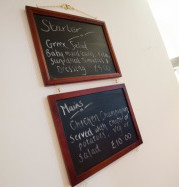 Starter
Greek Salad
Baby mixed leaves, feta
Sundried Tomatoes &
Dressing £5.50
Mains
Chicken Chasseur
Served with
potatoes, of
£10.00